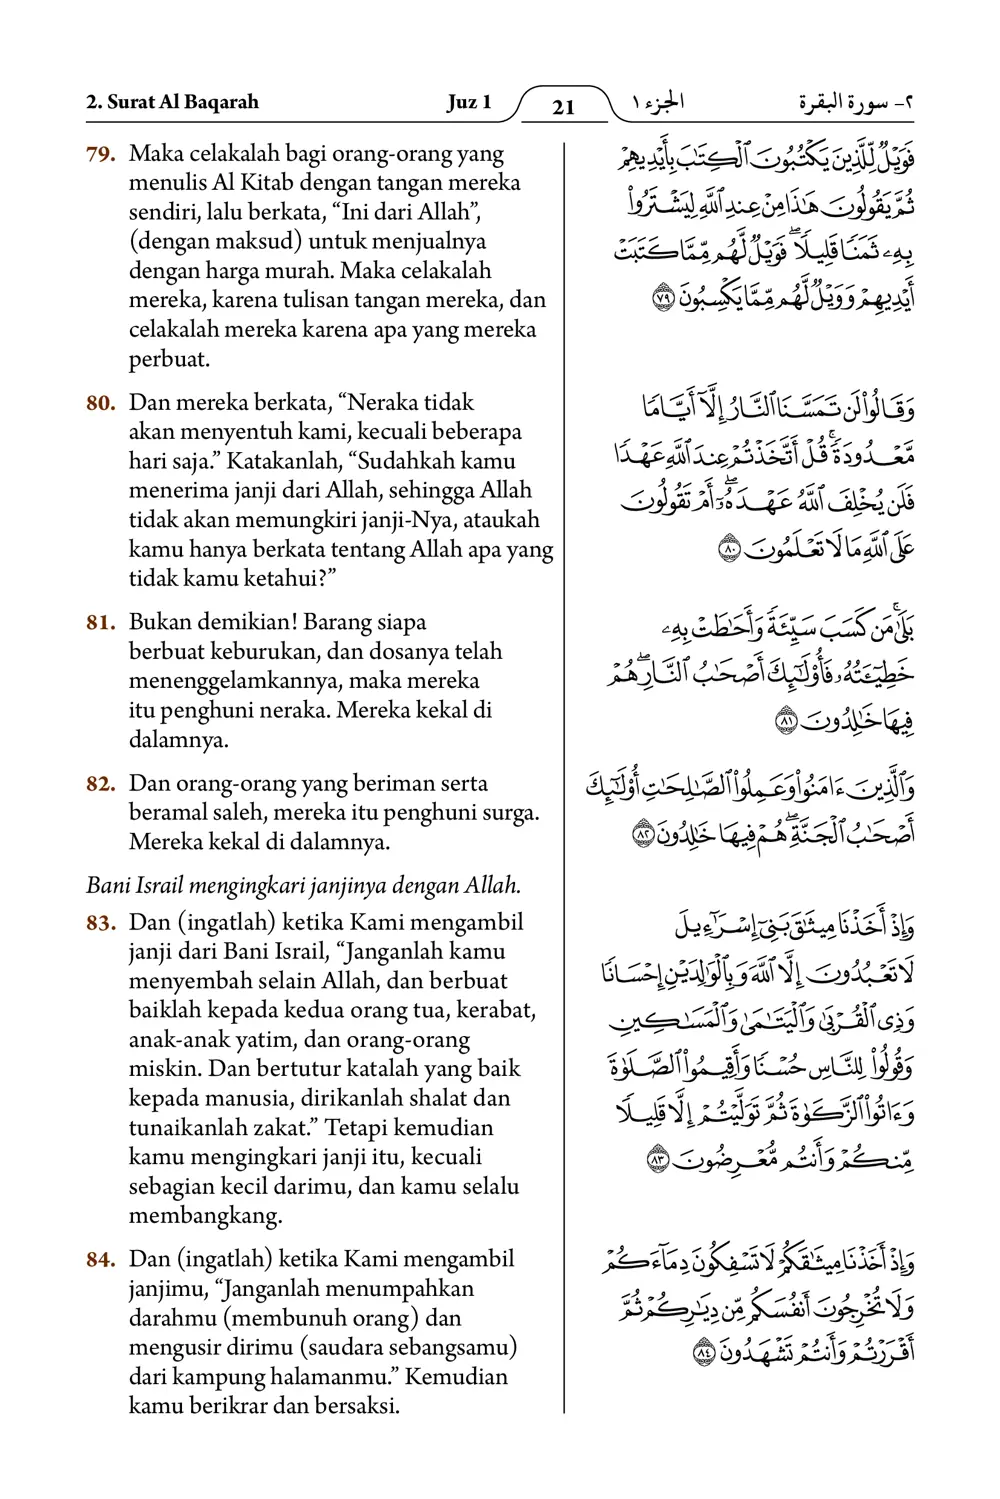 2. Surat Al Baqarah
Juz 1
21
الجزء ١
٢- سورة البقرة
79. Maka celakalah bagi orang-orang yang
menulis Al Kitab dengan tangan mereka
sendiri, lalu berkata, “Ini dari Allah”,
(dengan maksud) untuk menjualnya
dengan harga murah. Maka celakalah
mereka, karena tulisan tangan mereka, dan
celakalah mereka karena apa yang mereka
perbuat.
فَوَيْلٌ لِّلَّذِينَ يَكْتُبُونَ ٱلْكِتَٰبَ بِأَيْدِيهِمْ
ثُمَّ يَقُولُونَ هَٰذَا مِنْ عِندِ ٱللَّهِ لِيَشْتَرُوا۟
بِهِۦ ثَمَنًا قَلِيلًا ۖ فَوَيْلٌ لَّهُم مِّمَّا كَتَبَتْ
أَيْدِيهِمْ وَوَيْلٌ لَّهُم مِّمَّا يَكْسِبُونَ ٧٩
80. Dan mereka berkata, “Neraka tidak
akan menyentuh kami, kecuali beberapa
hari saja.” Katakanlah, “Sudahkah kamu
menerima janji dari Allah, sehingga Allah
tidak akan memungkiri janji-Nya, ataukah
kamu hanya berkata tentang Allah apa yang
tidak kamu ketahui?”
وَقَالُوا۟ لَن تَمَسَّنَا ٱلنَّارُ إِلَّآ أَيَّامًا
مَّعْدُودَةً ۚ قُلْ أَتَّخَذْتُمْ عِندَ ٱللَّهِ عَهْدًا
فَلَن يُخْلِفَ ٱللَّهُ عَهْدَهُۥٓ ۖ أَمْ تَقُولُونَ
عَلَى ٱللَّهِ مَا لَا تَعْلَمُونَ ٨٠
81. Bukan demikian! Barang siapa
berbuat keburukan, dan dosanya telah
menenggelamkannya, maka mereka
itu penghuni neraka. Mereka kekal di
dalamnya.
بَلَىٰ ۚ مَن كَسَبَ سَيِّئَةً وَأَحَٰطَتْ بِهِۦ
خَطِيٓـَٔتُهُۥ فَأُو۟لَٰٓئِكَ أَصْحَٰبُ ٱلنَّارِ ۖ هُمْ
فِيهَا خَٰلِدُونَ ٨١
82. Dan orang-orang yang beriman serta
beramal saleh, mereka itu penghuni surga.
Mereka kekal di dalamnya.
وَٱلَّذِينَ ءَامَنُوا۟ وَعَمِلُوا۟ ٱلصَّٰلِحَٰتِ أُو۟لَٰٓئِكَ
أَصْحَٰبُ ٱلْجَنَّةِ ۖ هُمْ فِيهَا خَٰلِدُونَ ٨٢
Bani Israil mengingkari janjinya dengan Allah.
83. Dan (ingatlah) ketika Kami mengambil
janji dari Bani Israil, “Janganlah kamu
menyembah selain Allah, dan berbuat
baiklah kepada kedua orang tua, kerabat,
anak-anak yatim, dan orang-orang
miskin. Dan bertutur katalah yang baik
kepada manusia, dirikanlah shalat dan
tunaikanlah zakat.” Tetapi kemudian
kamu mengingkari janji itu, kecuali
sebagian kecil darimu, dan kamu selalu
membangkang.
وَإِذْ أَخَذْنَا مِيثَٰقَ بَنِىٓ إِسْرَٰٓءِيلَ
لَا تَعْبُدُونَ إِلَّا ٱللَّهَ وَبِٱلْوَٰلِدَيْنِ إِحْسَانًا
وَذِى ٱلْقُرْبَىٰ وَٱلْيَتَٰمَىٰ وَٱلْمَسَٰكِينِ
وَقُولُوا۟ لِلنَّاسِ حُسْنًا وَأَقِيمُوا۟ ٱلصَّلَوٰةَ
وَءَاتُوا۟ ٱلزَّكَوٰةَ ثُمَّ تَوَلَّيْتُمْ إِلَّا قَلِيلًا
مِّنكُمْ وَأَنتُم مُّعْرِضُونَ ٨٣
84. Dan (ingatlah) ketika Kami mengambil
janjimu, “Janganlah menumpahkan
darahmu (membunuh orang) dan
mengusir dirimu (saudara sebangsamu)
dari kampung halamanmu.” Kemudian
kamu berikrar dan bersaksi.
وَإِذْ أَخَذْنَا مِيثَٰقَكُمْ لَا تَسْفِكُونَ دِمَآءَكُمْ
وَلَا تُخْرِجُونَ أَنفُسَكُم مِّن دِيَٰرِكُمْ ثُمَّ
أَقْرَرْتُمْ وَأَنتُمْ تَشْهَدُونَ ٨٤